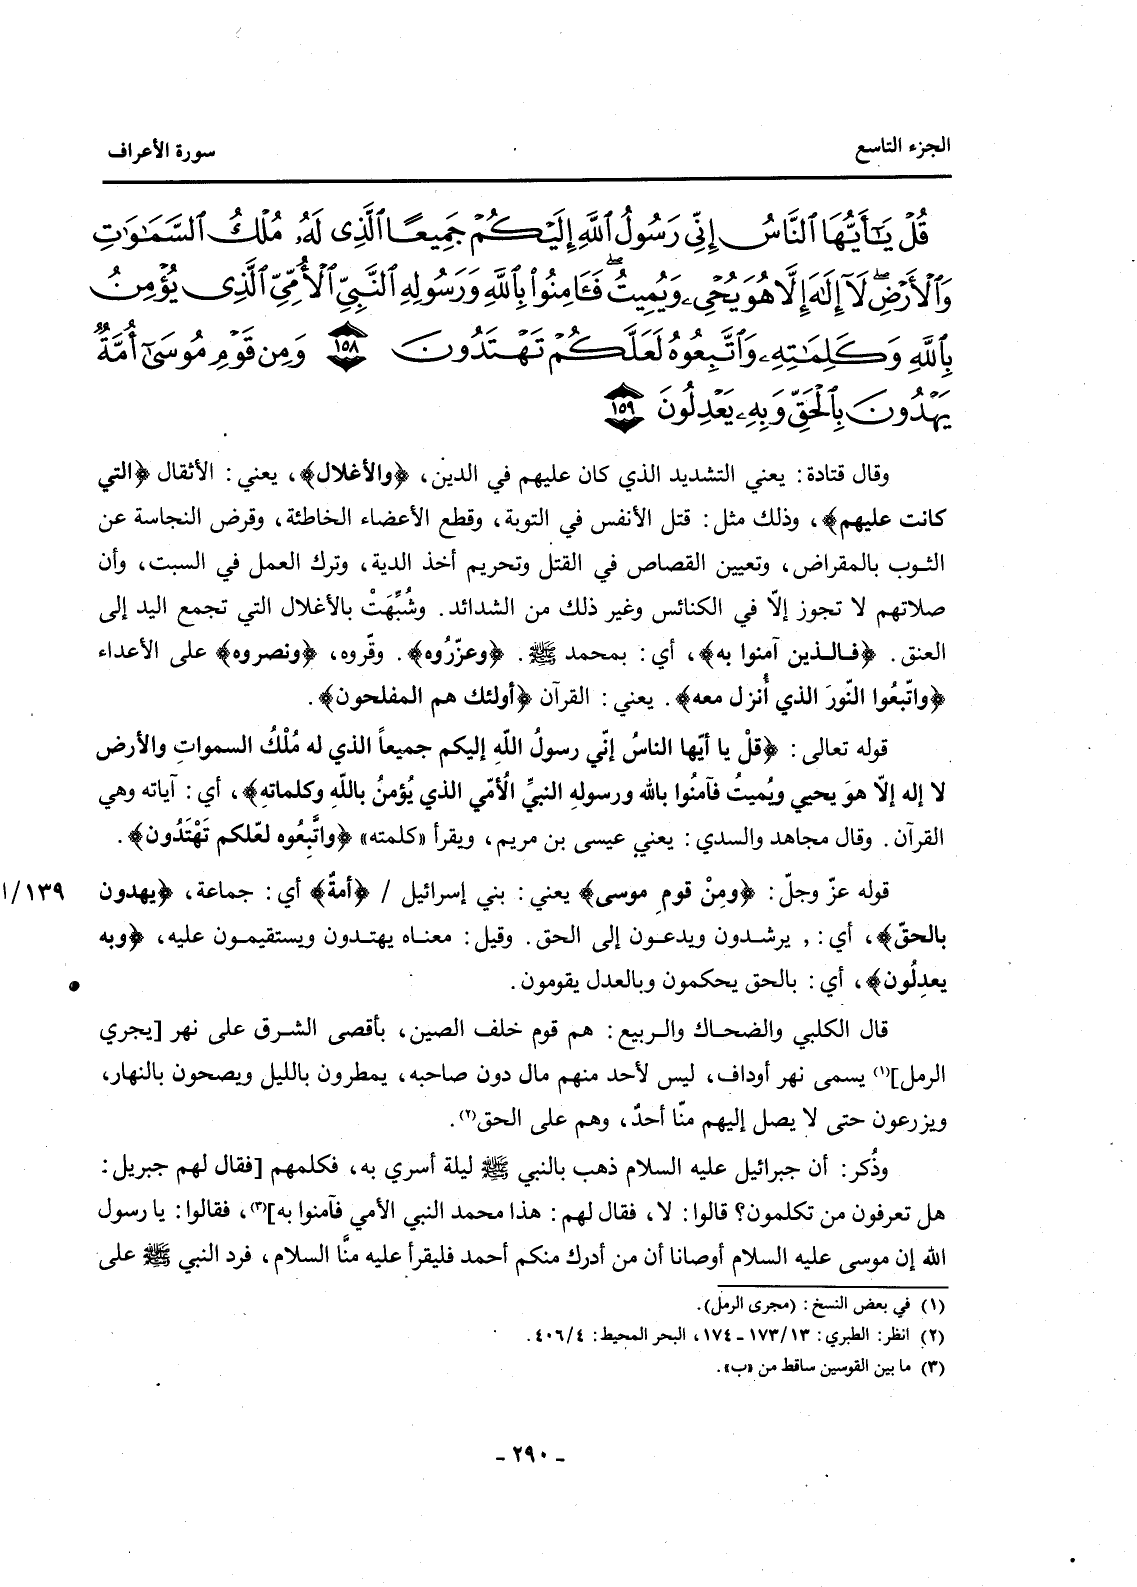 الجزء التاسع
سورة الأعراف
قُلْ يَـٰٓأَيُّهَا ٱلنَّاسُ إِنِّى رَسُولُ ٱللَّهِ إِلَيْكُمْ جَمِيعًا ٱلَّذِى لَهُۥ مُلْكُ ٱلسَّمَـٰوَٰتِ
وَٱلْأَرْضِۖ لَآ إِلَـٰهَ إِلَّا هُوَ يُحْىِۦ وَيُمِيتُۖ فَـَٔامِنُوا۟ بِٱللَّهِ وَرَسُولِهِ ٱلنَّبِىِّ ٱلْأُمِّىِّ ٱلَّذِى يُؤْمِنُ
بِٱللَّهِ وَكَلِمَـٰتِهِۦ وَٱتَّبِعُوهُ لَعَلَّكُمْ تَهْتَدُونَ ١٥٨ وَمِن قَوْمِ مُوسَىٰٓ أُمَّةٌ
يَهْدُونَ بِٱلْحَقِّ وَبِهِۦ يَعْدِلُونَ ١٥٩
وقال قتادة: يعني التشديد الذي كان عليهم في الدين، ﴿والأغلال﴾، يعني: الأثقال ﴿التي
كانت عليهم﴾، وذلك مثل: قتل الأنفس في التوبة، وقطع الأعضاء الخاطئة، وقرض النجاسة عن
الثوب بالمقراض، وتعيين القصاص في القتل وتحريم أخذ الدية، وترك العمل في السبت، وأن
صلاتهم لا تجوز إلّا في الكنائس وغير ذلك من الشدائد. وشُبِّهَتْ بالأغلال التي تجمع اليد إلى
العنق. ﴿فالذين آمنوا به﴾، أي: بمحمد ﷺ. ﴿وعزّرُوه﴾. وقّروه، ﴿ونصروه﴾ على الأعداء
﴿واتّبعُوا النّورَ الذي أُنزل معه﴾. يعني: القرآن ﴿أولئك هم المفلحون﴾.
قوله تعالى: ﴿قلْ يا أيّها الناسُ إنّي رسولُ اللّهِ إليكم جميعاً الذي له مُلْكُ السمواتِ والأرض
لا إله إلّا هوَ يحيي ويُميتُ فآمنُوا بالله ورسولهِ النبيِّ الأُمّي الذي يُؤمنُ باللّهِ وكلماتهِ﴾، أي: آياته وهي
القرآن. وقال مجاهد والسدي: يعني عيسى بن مريم، ويقرأ «كلمته» ﴿واتَّبعُوه لعّلكم تَهْتَدُون﴾.
قوله عزّ وجلّ: ﴿ومِنْ قومِ موسى﴾ يعني: بني إسرائيل / ﴿أمةٌ﴾ أي: جماعة، ﴿يهدون
١٣٩/ا
بالحقّ﴾، أي: يرشدون ويدعون إلى الحق. وقيل: معناه يهتدون ويستقيمون عليه، ﴿وبه
يعدِلُون﴾، أي: بالحق يحكمون وبالعدل يقومون.
قال الكلبي والضحاك والربيع: هم قوم خلف الصين، بأقصى الشرق على نهر [يجري
الرمل](١) يسمى نهر أوداف، ليس لأحد منهم مال دون صاحبه، يمطرون بالليل ويصحون بالنهار،
ويزرعون حتى لا يصل إليهم منّا أحدٌ، وهم على الحق(٢).
وذُكر: أن جبرائيل عليه السلام ذهب بالنبي ﷺ ليلة أسري به، فكلمهم [فقال لهم جبريل:
هل تعرفون من تكلمون؟ قالوا: لا، فقال لهم: هذا محمد النبي الأمي فآمنوا به](٣)، فقالوا: يا رسول
الله إن موسى عليه السلام أوصانا أن من أدرك منكم أحمد فليقرأ عليه منَّا السلام، فرد النبي ﷺ على
(١) في بعض النسخ: (مجرى الرمل).
(٢) انظر: الطبري: ١٧٣/١٣ - ١٧٤، البحر المحيط: ٤٠٦/٤.
(٣) ما بين القوسين ساقط من «ب».
- ٢٩٠ -